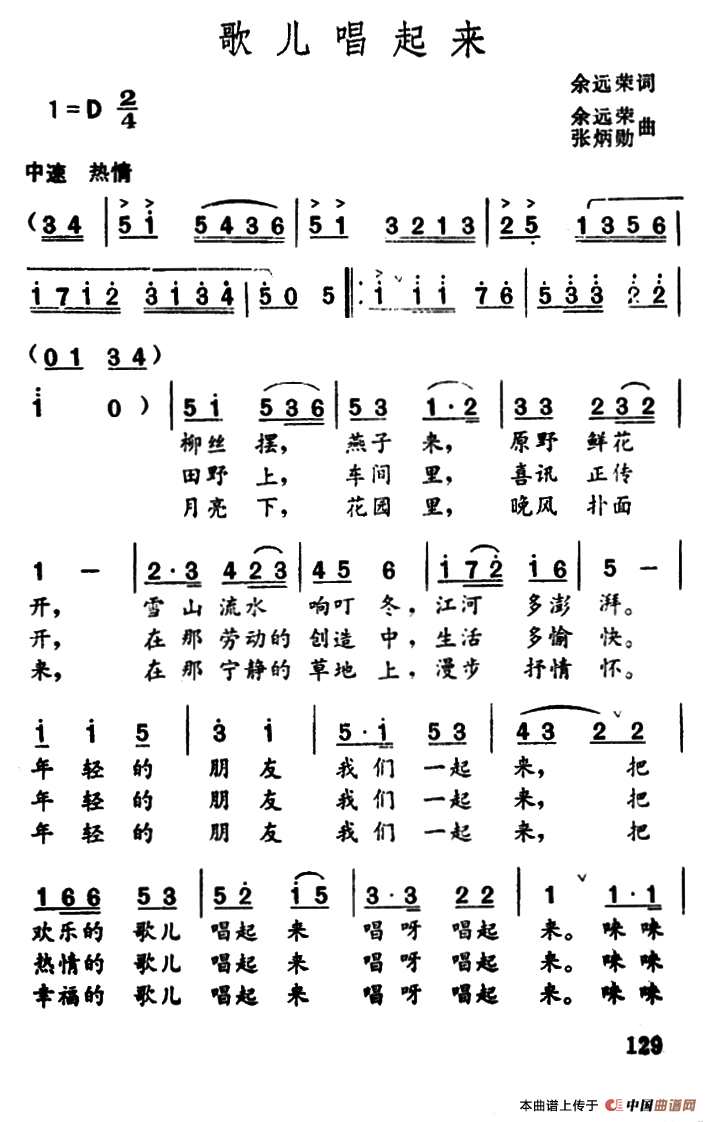 歌儿唱起来
余远荣词
1=D 2/4
余远荣
张炳勋 曲
中速 热情
(3 4 | 5 i 5 4 3 6 | 5 1 3 2 1 3 | 2 5 1 3 5 6 |
i 7 i 2 3 i 3 4 | 5 0 5 ‖: i i i 7 6 | 5 3 3 2 2 |
(0 1 3 4)
i 0) | 5 i 5 3 6 | 5 3 1·2 | 3 3 2 3 2 |
柳丝摆，燕子来，原野鲜花
田野上，车间里，喜讯正传
月亮下，花园里，晚风扑面
1 － | 2·3 4 2 3 | 4 5 6 | i 7 2 i 6 | 5 － |
开，雪山流水响叮冬，江河多澎湃。
开，在那劳动的创造中，生活多愉快。
来，在那宁静的草地上，漫步抒情怀。
i i 5 | 3 i | 5·i 5 3 | 4 3 2 2 |
年轻的朋友我们一起来，把
年轻的朋友我们一起来，把
年轻的朋友我们一起来，把
1 6 6 5 3 | 5 2 i 5 | 3·3 2 2 | 1 1·1 |
欢乐的歌儿唱起来唱呀唱起来。咪咪
热情的歌儿唱起来唱呀唱起来。咪咪
幸福的歌儿唱起来唱呀唱起来。咪咪
129
本曲谱上传于 中国曲谱网